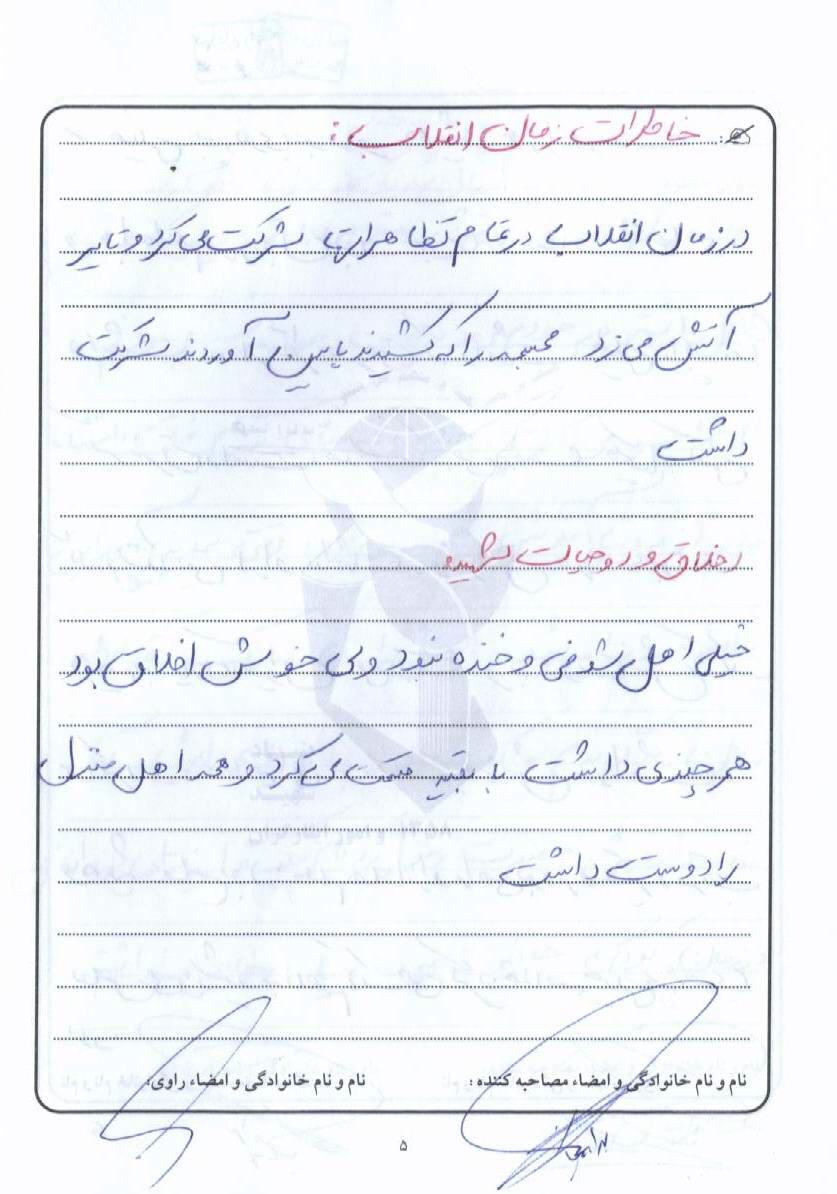 خاطرات زمان انقلاب :
در زمان انقلاب در تمام تظاهراتها شرکت می کرد و تایر
آتش می زد مجسمه را که کشیدند پایین آوردند شرکت
داشت
اخلاق و روحیات شهید
خیلی اهل شوخی و خنده نبود ولی خوش اخلاق بود
هر چیزی داشت با بقیه قسمت می کرد و همه اهل منزل
را دوست داشت
نام و نام خانوادگی و امضاء مصاحبه کننده : نام و نام خانوادگی و امضاء راوی:
۵